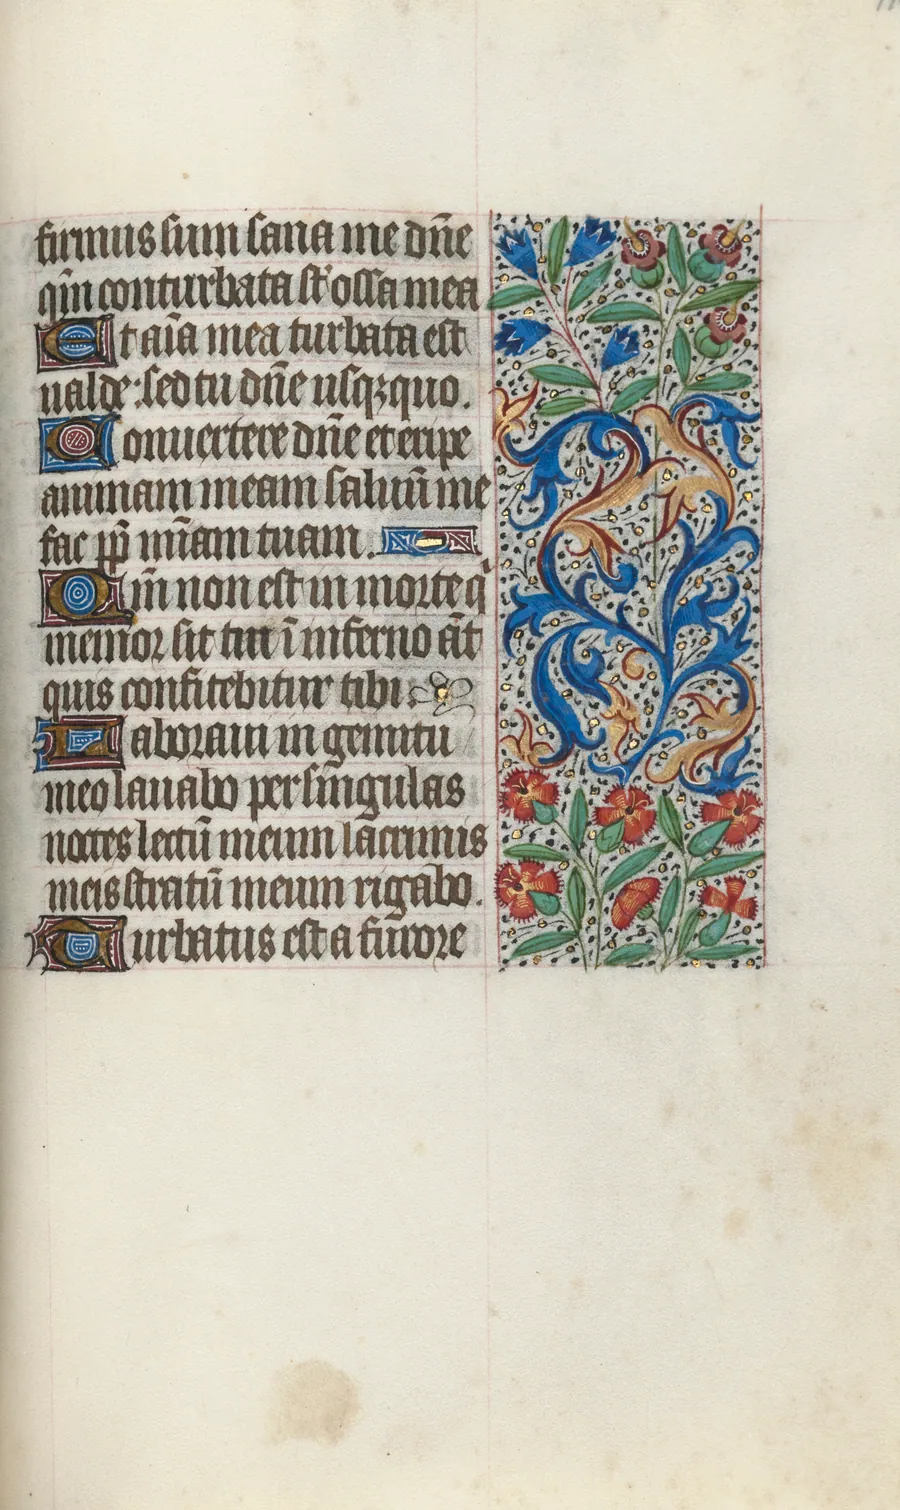 firmus sum sana me dñe
qm̃ conturbata st̃ ossa mea
Et aĩa mea turbata est
ualde: sed tu dñe usqꝫquo.
Conuertere dñe et eripe
animam meam saluũ me
fac pp̃ mĩam tuam.
Qm̃ non est in morte q̃
memor sit tui ĩ inferno aũt
quis confitebitur tibi.
Laboraui in gemitu
meo lauabo per singulas
noctes lectũ meum lacrimis
meis stratũ meum rigabo.
Turbatus est a furore